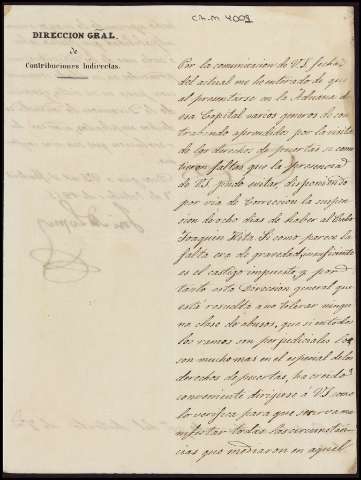 C.A.M 4009
DIRECCION GRAL.
de
Contribuciones Indirectas.
Por la comunicacion de V.S. fecha
del actual me he enterado de que
al presentarse en la Aduana de
esa Capital varios generos de con-
trabando aprendidos por la visita
de los derechos de puertas se come-
tieron faltas que la presencia
de V.S. pudo evitar, disponiendo
por via de Correccion la suspen-
cion de ocho dias de haber al
Joaquin Rita. Si como parece la
falta era de gravedad, insuficiente
es el castigo impuesto, y por
tanto esta Direccion general que
está resuelta a no tolerar ningu-
na clase de abusos, que si en todos
los ramos son perjudiciales lo
son mucho mas en el especial de los
derechos de puertas, ha creido
conveniente dirigirse á V.S. como
lo verifica para que se sirva ma-
nifestar todas las circunstan-
cias que mediaron en aquel